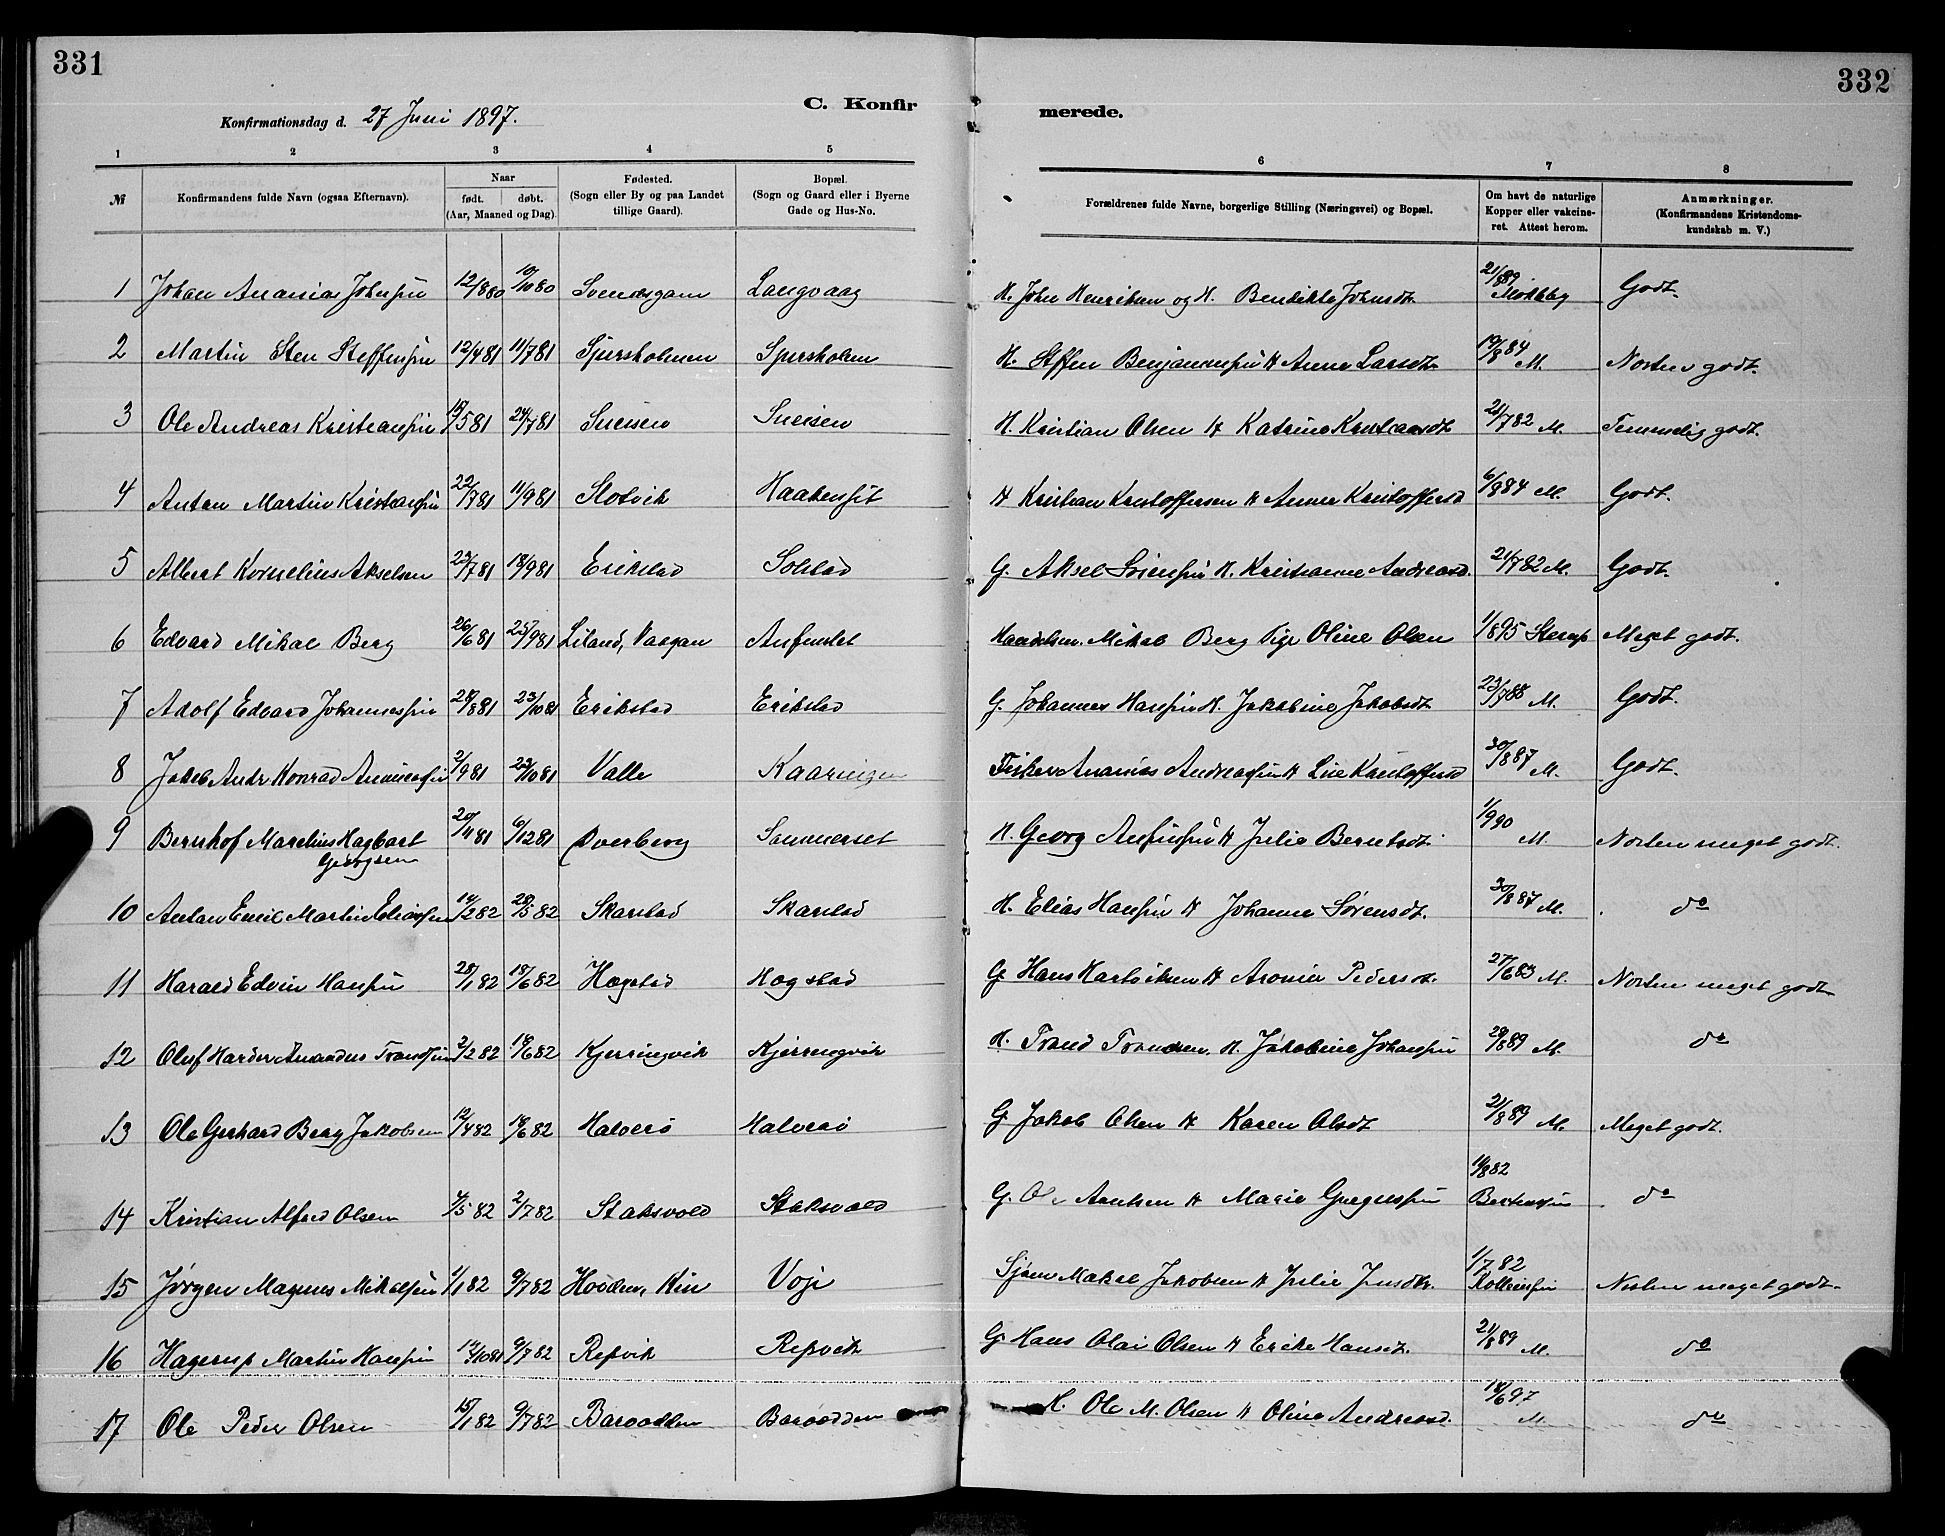 331
332
C. Konfirmerede.
Konfirmationsdag d. 27 Juni 1897.
1 2 3 4 5 6 7 8
№ Konfirmandens fulde Navn (ogsaa Efternavn). Naar født. døbt. (Aar, Maaned og Dag). Fødested. (Sogn eller By og paa Landet tillige Gaard). Bopæl. (Sogn og Gaard eller i Byerne Gade og Hus-No. Forældrenes fulde Navne, borgerlige Stilling (Næringsvei) og Bopæl. Om havt de naturlige Kopper eller vakcineret. Attest herom. Anmærkninger. (Konfirmandens Kristendomskundskab m. V.)
1 Johan Ananias Johnsen 12/8 80 10/10 80 Langvaag H. John Henriksen og H. Benedikte Johnsdt. 21/8 89 Godt.
2 Martin Sten Steffensen 12/4 81 11/7 81 Sjursholmen Sjursholm H. Steffen Benjaminsen H Anna Larsdt. 19/8 84 M. Næsten godt.
3 Ole Andreas Kristiansen 5 81 24/7 81 H. Kristian Olsen H Katrine Kristiansdt 21/7 82 M. Temmelig godt.
4 Anton Martin Kristiansen 22/7 81 11/9 81 Slotvik Haakenset H Kristian Kristoffersen H Anna Kristoffersd 6/8 84 M. Godt.
5 Albert Kornelius Akselsen 23/7 81 18/9 81 Erikstad Solstad G. Aksel H. Kristianne Andreasd. 21/7 82 M. Godt.
6 Edvard Mikal Berg 26/6 81 25/9 81 Liland, Vaagan Handelsm. Mikal Berg Pige Oline Olsen 1/8 95 Meget godt.
7 Adolf Edvard Johannessen 28/8 81 23/10 81 Erikstad Erikstad G. Johannes Hansen H. Jakobine Jakobsdt 23/7 88 M. Godt.
8 Jakob Andr Konrad Ananiassen 2/9 81 23/10 81 Valle Kaaringen Fisker Ananias Andreassen H Line Kristoffersd 30/8 87 M. Godt.
9 Bernhof Marelius Hagbart Georgsen 20/4 81 6/12 81 Dverberg Sommerset H. Georg Anfinsen H Julie Berntsdt. 1/9 90 M. Næsten meget godt.
10 Anton Emil Martin Eliassen 14/2 82 28/5 82 Skarstad Skarstad H. Elias Hansen H Johanna Sørensdt. 30/8 87 M. do
11 Harald Edvin Hansen 28/1 82 18/6 82 Hægstad Hægstad G Hans Hartviksen H Aronia Pedersdt. 27/6 83 M. Næsten meget godt
12 Oluf Harder Amandus Trondsen 2/2 82 18/6 82 Kjerringvik Kjerringvik H. Trond Trondsen. H. Jakobine Johansen 29/8 89 M. do
13 Ole Gerhard Berg Jakobsen 12/4 82 18/6 82 Halverø Halverø G. Jakob Olsen H Karen Olsdt 21/8 89 M. Meget godt.
14 Kristian Alfred Olsen 4/5 82 2/7 82 Stoksvold Stoksvold G. Ole H Marie 11/8 82 do
15 Jørgen Magnus Mikalsen 1/1 82 9/7 82 Voje Mikal Jakobsen H Julie 1/7 82 Næsten meget godt.
16 Hagerup Martin Hansen 10 81 9/7 82 Repvik Repvik G. Hans Olai Olsen H Erike Hansdt. 21/8 89 M. do
17 Ole Peder Olsen 15/1 82 9/7 82 Barodden Barodden H. Ole M. Olsen H Oline Andreasd. 14/6 97 M. do